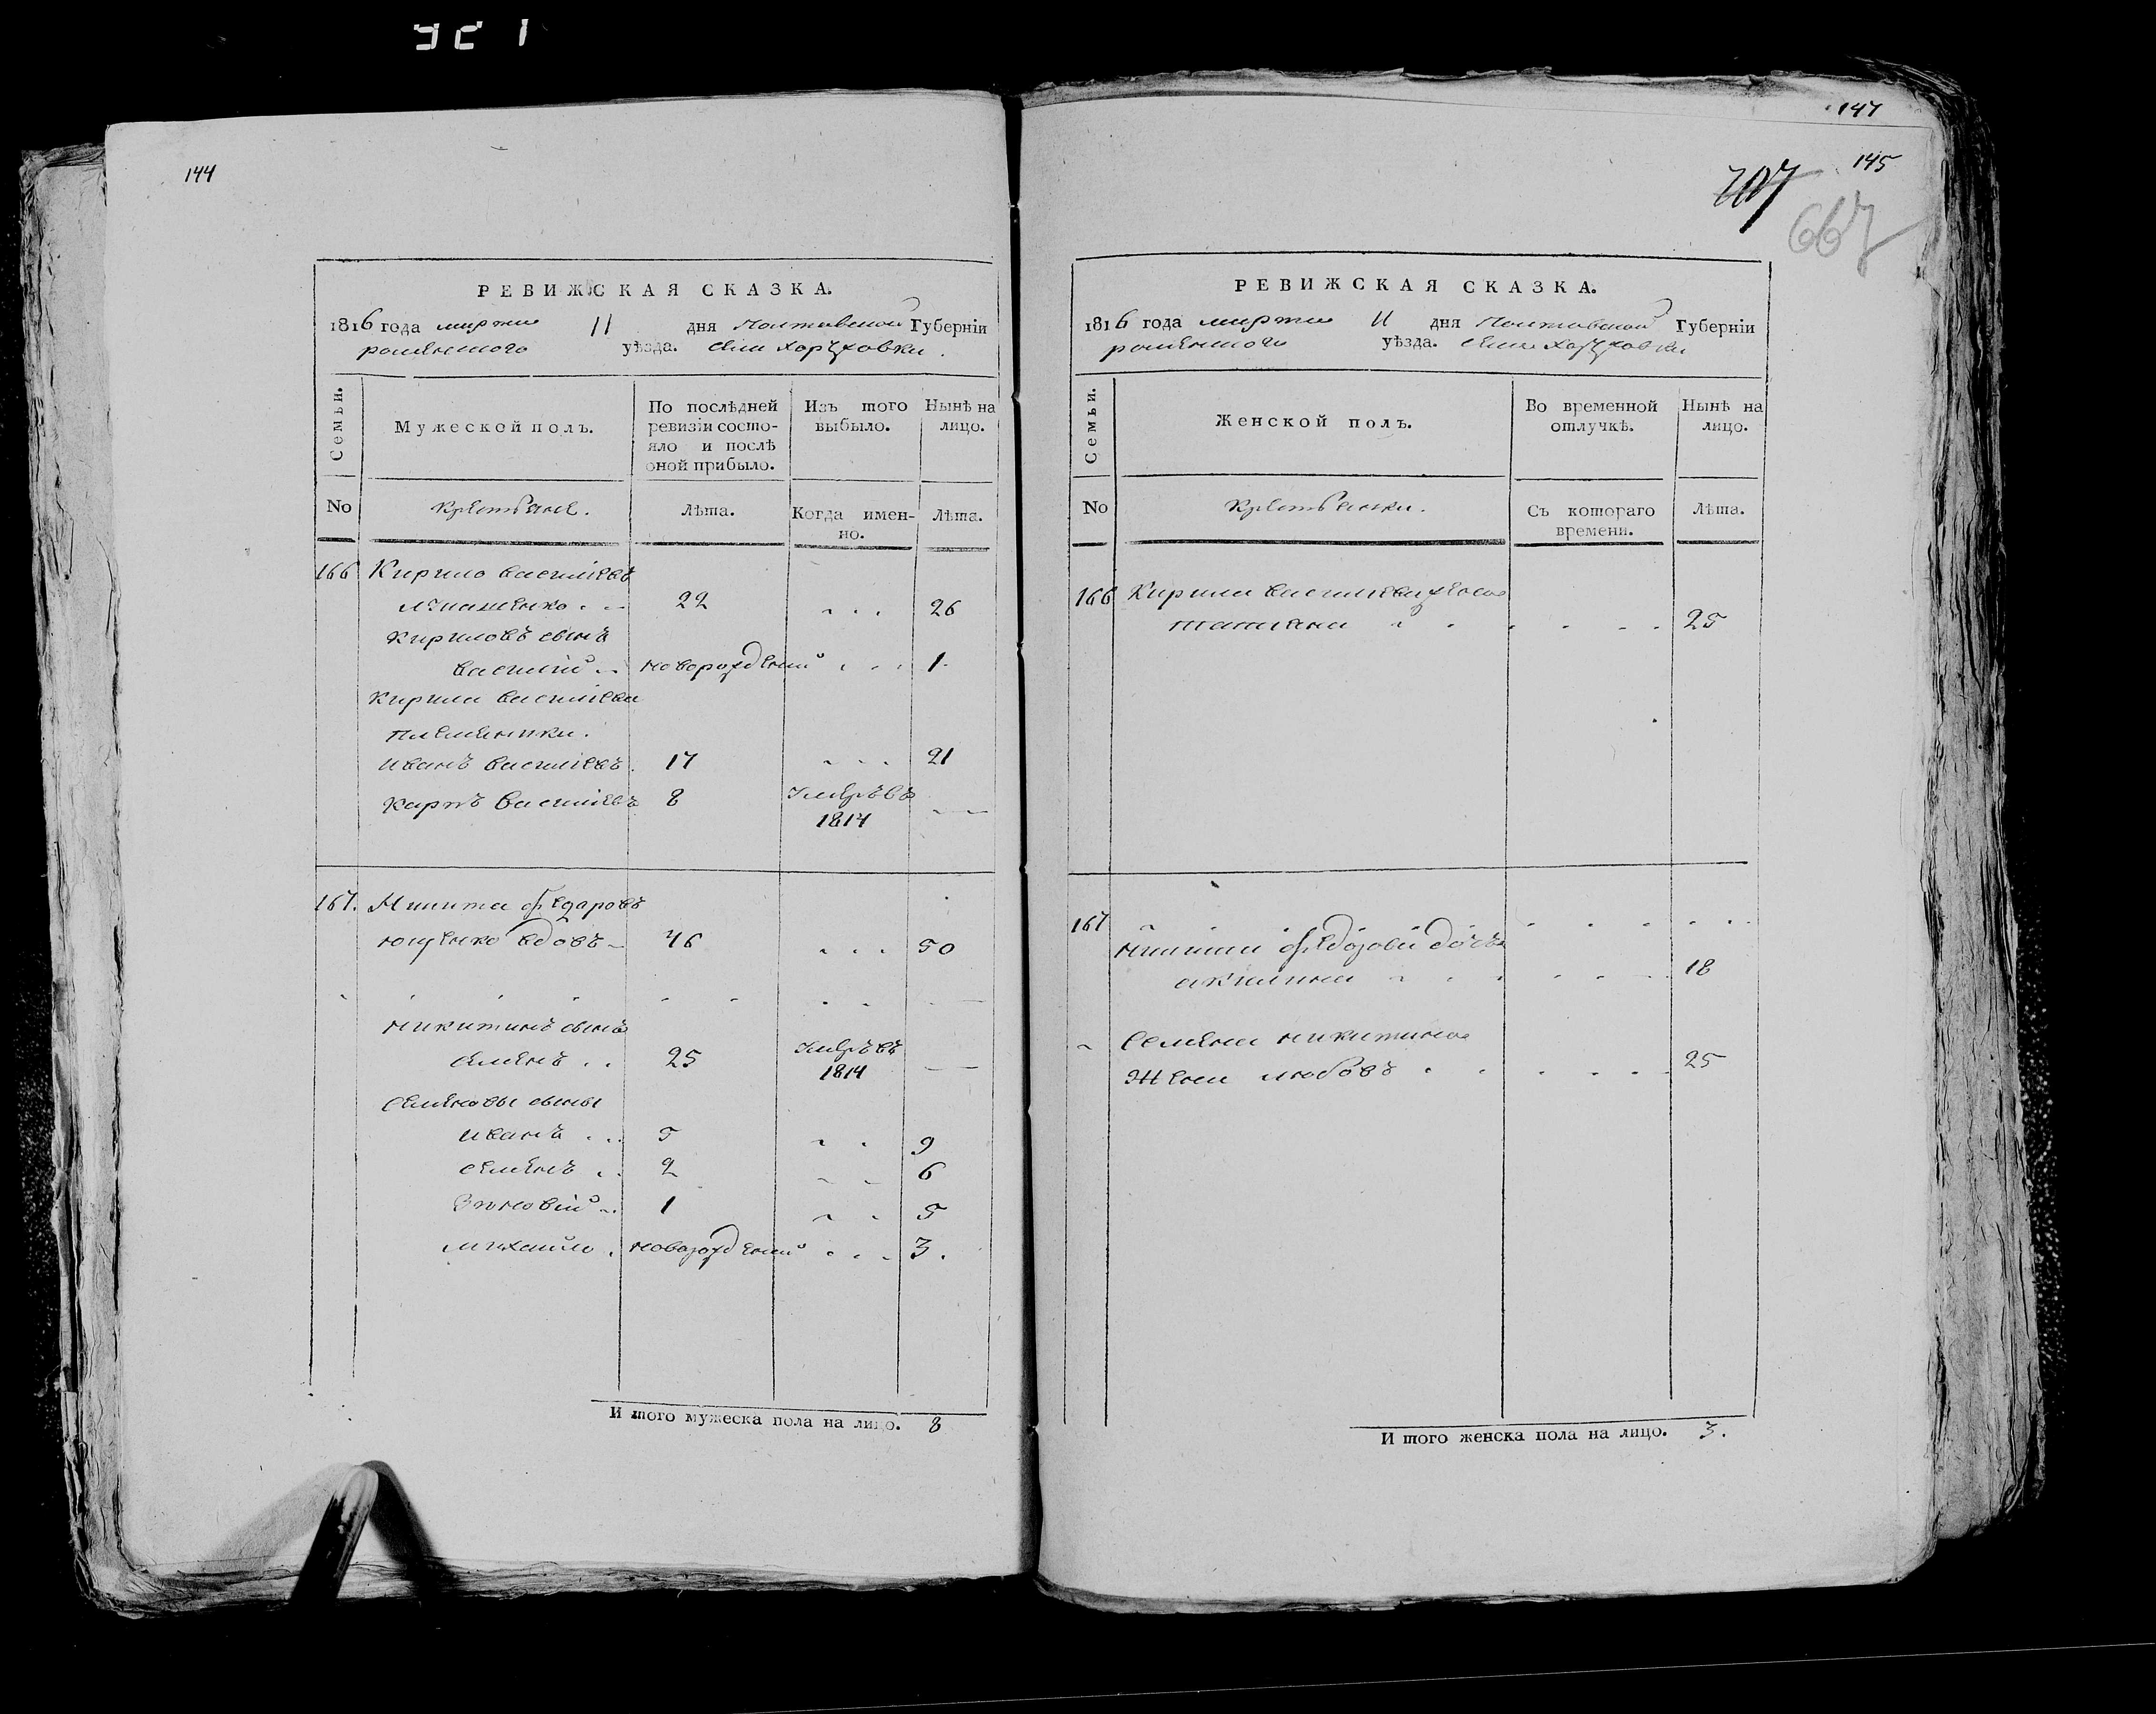 921
144
РЕВИЖСКАЯ СКАЗКА.
1816 года марта 11 дня Полтавской Губерніи
роменского уѣзда. села Хоружовки.
Семьи.
Мужеской полъ.
По послѣдней ревизіи состояло и послѣ оной прибыло.
Изъ того выбыло.
Нынѣ на лицо.
No
Крестьяне.
Лѣта.
Когда именно.
Лѣта.
166 Кирило василіевъ
22 26
Кириловъ сынъ
василій новорожденій 1.
Кирила василіева
племеники.
иванъ василіевъ. 17 21
карпъ василіевъ 8 умеръ въ 1814
167. Микита федаровъ
ющенко вдовъ 46 50
микитинъ сынъ
семенъ 25 умеръ въ 1814
семеновы сыны
иванъ 5 9
семенъ 2 6
Зиновій 1 5
михайло новорожденій 3.
И того мужеска пола на лицо. 8
147
145
707
667
РЕВИЖСКАЯ СКАЗКА.
1816 года марта 11 дня Полтавской Губерніи
роменского уѣзда. села Хоружовки
Семьи.
Женской полъ.
Во временной отлучкѣ.
Нынѣ на лицо.
No
Крестьянки.
Съ котораго времени.
Лѣта.
166 Кирила василиева жена
татияна 25
167
микити федорова дочь
акилина 18
Семена никитина
Жена любовъ 25
И того женска пола на лицо. 3.